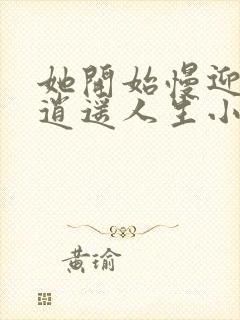 她開始慢迎
逍遥人生小
黃瑜